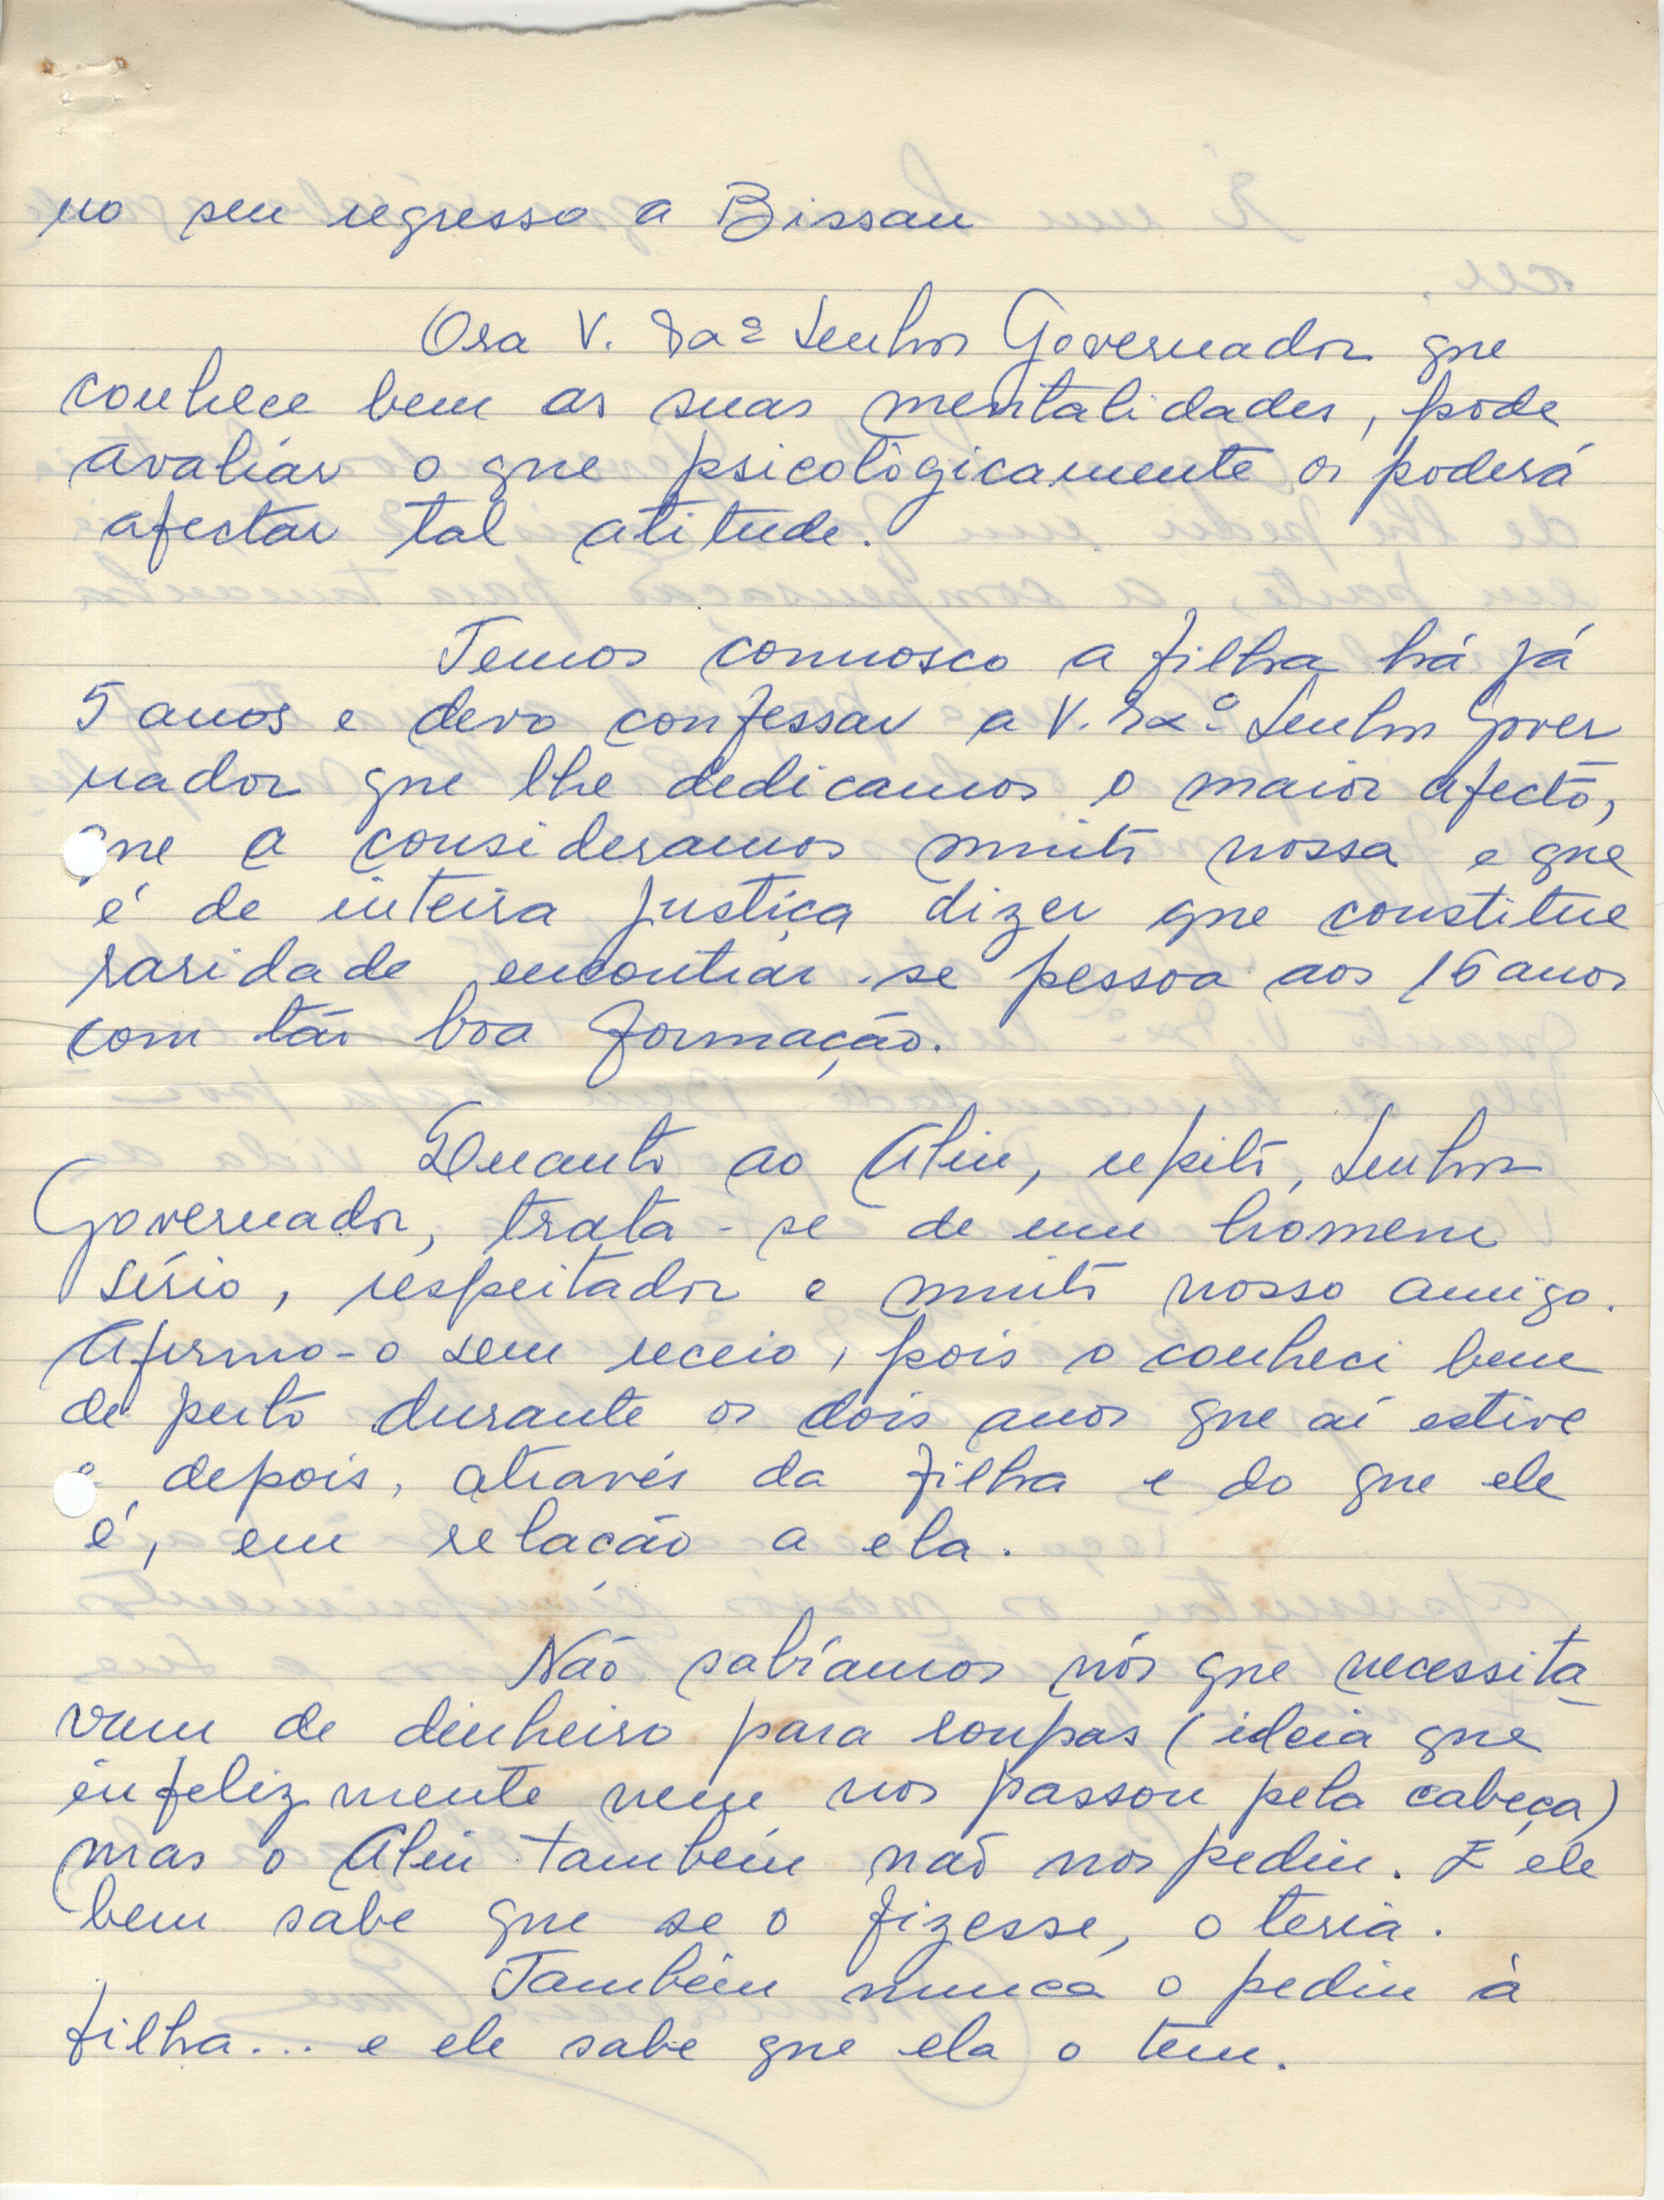 no seu regresso a Bissau
Ora V. Exª Senhor Governador que
conhece bem as suas mentalidades, pode
avaliar o que psicològicamente os poderá
afectar tal atitude.
Temos connosco a filha há já
5 anos e devo confessar a V. Exª Senhor Gover
nador que lhe dedicamos o maior afecto,
que a consideramos muito nossa e que
é de inteira justiça dizer que constitue
raridade encontrar-se pessoa aos 16 anos
com tão boa formação.
Quanto ao Aliu, repito, Senhor
Governador, trata-se de um homem
sério, respeitador e muito nosso amigo.
Afirmo-o sem receio, pois o conheci bem
de perto durante os dois anos que aí estive
e depois, através da filha e do que ele
é, em relacão a ela.
Não sabíamos nós que necessita
vam de dinheiro para roupas (ideia que
infelizmente nem nos passou pela cabeça)
mas o Aliu também não nos pediu. E ele
bem sabe que se o fizesse, o teria.
Também nunca o pediu à
filha... e ele sabe que ela o tem.